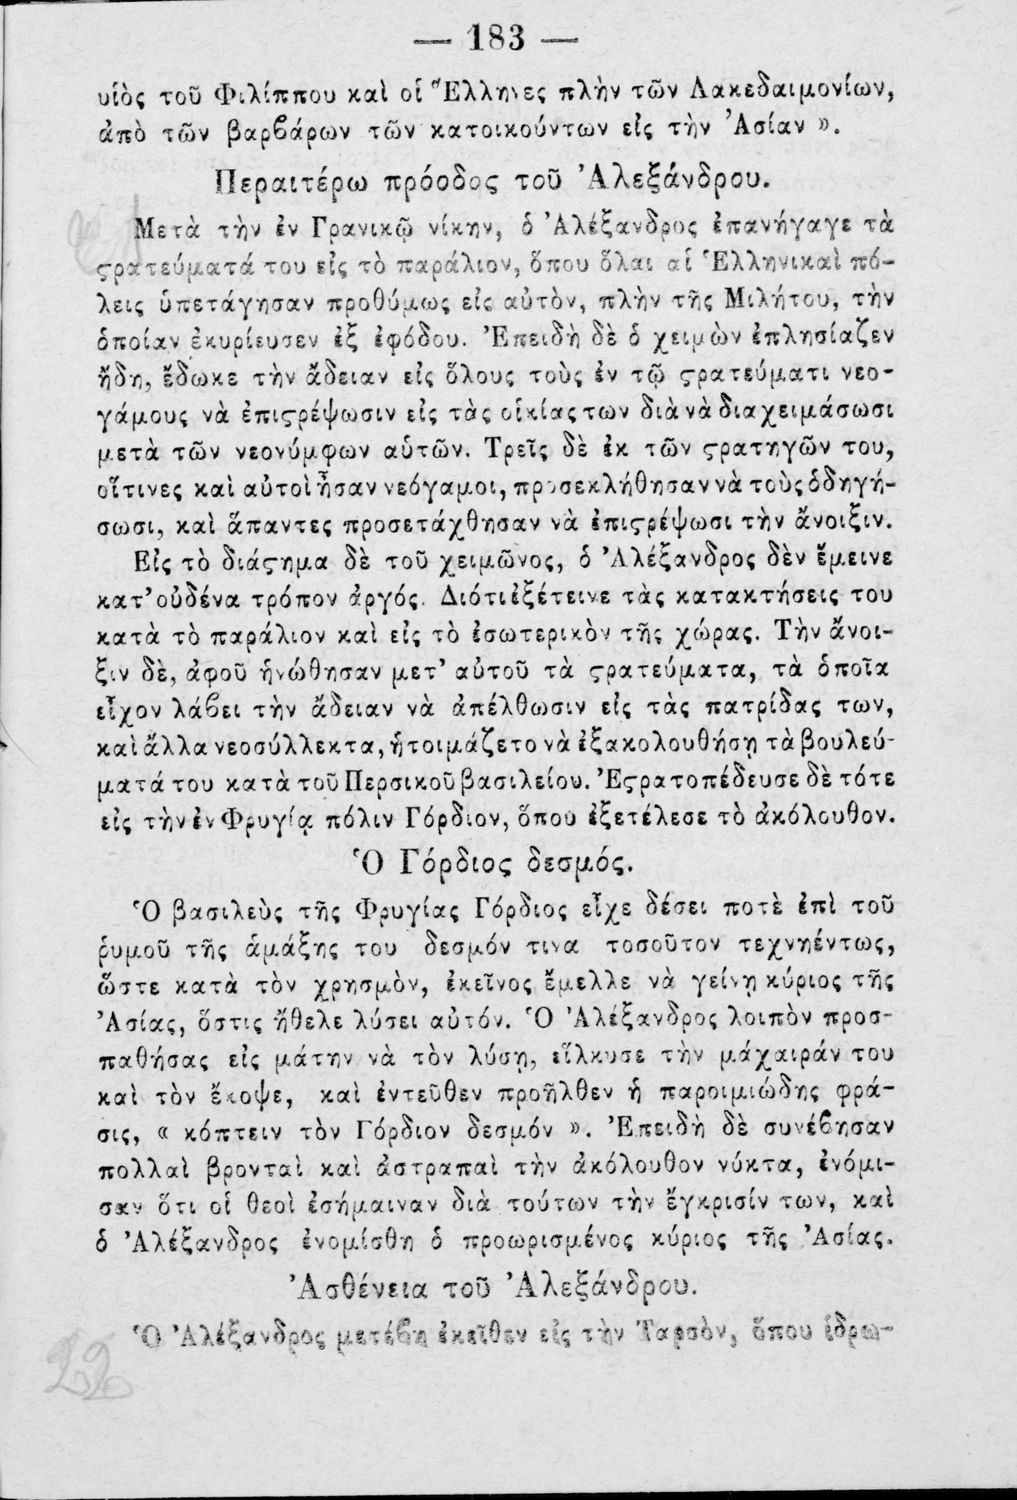 — 183 —
υἱὸς τοῦ Φιλίππου καὶ οἱ Ἕλληνες πλὴν τῶν Λακεδαιμονίων,
ἀπὸ τῶν βαρϐάρων τῶν κατοικούντων εἰς τὴν Ἀσίαν ».
Περαιτέρω πρόοδος τοῦ Ἀλεξάνδρου.
Μετὰ τὴν ἐν Γρανικῷ νίκην, ὁ Ἀλέξανδρος ἐπανήγαγε τὰ
ϛρατεύματά του εἰς τὸ παράλιον, ὅπου ὅλαι αἱ Ἑλληνικαὶ πό-
λεις ὑπετάγησαν προθύμως εἰς αὐτὸν, πλὴν τῆς Μιλήτου, τὴν
ὁποίαν ἐκυρίευσεν ἐξ ἐφόδου. Ἐπειδὴ δὲ ὁ χειμὼν ἐπλησίαζεν
ἤδη, ἔδωκε τὴν ἄδειαν εἰς ὅλους τοὺς ἐν τῷ ϛρατεύματι νεο-
γάμους νὰ ἐπιϛρέψωσιν εἰς τὰς οἰκίας των διὰ νὰ διαχειμάσωσι
μετὰ τῶν νεονύμφων αὑτῶν. Τρεῖς δὲ ἐκ τῶν ϛρατηγῶν του,
οἵτινες καὶ αὐτοὶ ἦσαν νεόγαμοι, προσεκλήθησαν νὰ τοὺς ὁδηγή-
σωσι, καὶ ἅπαντες προσετάχθησαν νὰ ἐπιϛρέψωσι τὴν ἄνοιξιν.
Εἰς τὸ διάϛημα δὲ τοῦ χειμῶνος, ὁ Ἀλέξανδρος δὲν ἔμεινε
κατ’ οὐδένα τρόπον ἀργός. Διότι ἐξέτεινε τὰς κατακτήσεις του
κατὰ τὸ παράλιον καὶ εἰς τὸ ἐσωτερικὸν τῆς χώρας. Τὴν ἄνοι-
ξιν δὲ, ἀφοῦ ἡνώθησαν μετ’ αὐτοῦ τὰ ϛρατεύματα, τὰ ὁποῖα
εἶχον λάϐει τὴν ἄδειαν νὰ ἀπέλθωσιν εἰς τὰς πατρίδας των,
καὶ ἄλλα νεοσύλλεκτα, ἡτοιμάζετο νὰ ἐξακολουθήσῃ τὰ βουλεύ-
ματά του κατὰ τοῦ Περσικοῦ βασιλείου. Ἐϛρατοπέδευσε δὲ τότε
εἰς τὴν ἐν Φρυγίᾳ πόλιν Γόρδιον, ὅπου ἐξετέλεσε τὸ ἀκόλουθον.
Ὁ Γόρδιος δεσμός.
Ὁ βασιλεὺς τῆς Φρυγίας Γόρδιος εἶχε δέσει ποτὲ ἐπὶ τοῦ
ῥυμοῦ τῆς ἁμάξης του δεσμόν τινα τοσοῦτον τεχνηέντως,
ὥστε κατὰ τὸν χρησμὸν, ἐκεῖνος ἔμελλε νὰ γείνῃ κύριος τῆς
Ἀσίας, ὅστις ἤθελε λύσει αὐτόν. Ὁ Ἀλέξανδρος λοιπὸν προσ-
παθήσας εἰς μάτην νὰ τὸν λύσῃ, εἵλκυσε τὴν μάχαιράν του
καὶ τὸν ἔκοψε, καὶ ἐντεῦθεν προῆλθεν ἡ παροιμιώδης φρά-
σις, « κόπτειν τὸν Γόρδιον δεσμόν ». Ἐπειδὴ δὲ συνέϐησαν
πολλαὶ βρονταὶ καὶ ἀστραπαὶ τὴν ἀκόλουθον νύκτα, ἐνόμι-
σαν ὅτι οἱ θεοὶ ἐσήμαιναν διὰ τούτων τὴν ἔγκρισίν των, καὶ
ὁ Ἀλέξανδρος ἐνομίσθη ὁ προωρισμένος κύριος τῆς Ἀσίας.
Ἀσθένεια τοῦ Ἀλεξάνδρου.
Ὁ Ἀλέξανδρος μετέϐη ἐκεῖθεν εἰς τὴν Ταρσὸν, ὅπου ἱδρω-
22